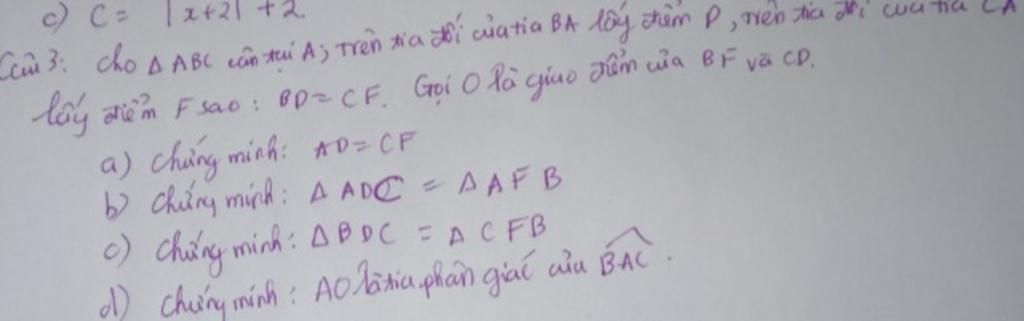 c) C = |x+2| + 2
Câu 3: Cho Δ ABC cân tại A; trên tia đối của tia BA lấy điểm D, trên tia đối của tia CA
lấy điểm F sao: BD = CF. Gọi O là giao điểm của BF và CD.
a) Chứng minh: AD = CF
b) Chứng minh: Δ ADC = Δ AFB
c) Chứng minh: Δ BDC = Δ CFB
d) Chứng minh: AO là tia phân giác của \widehat{BAC}.